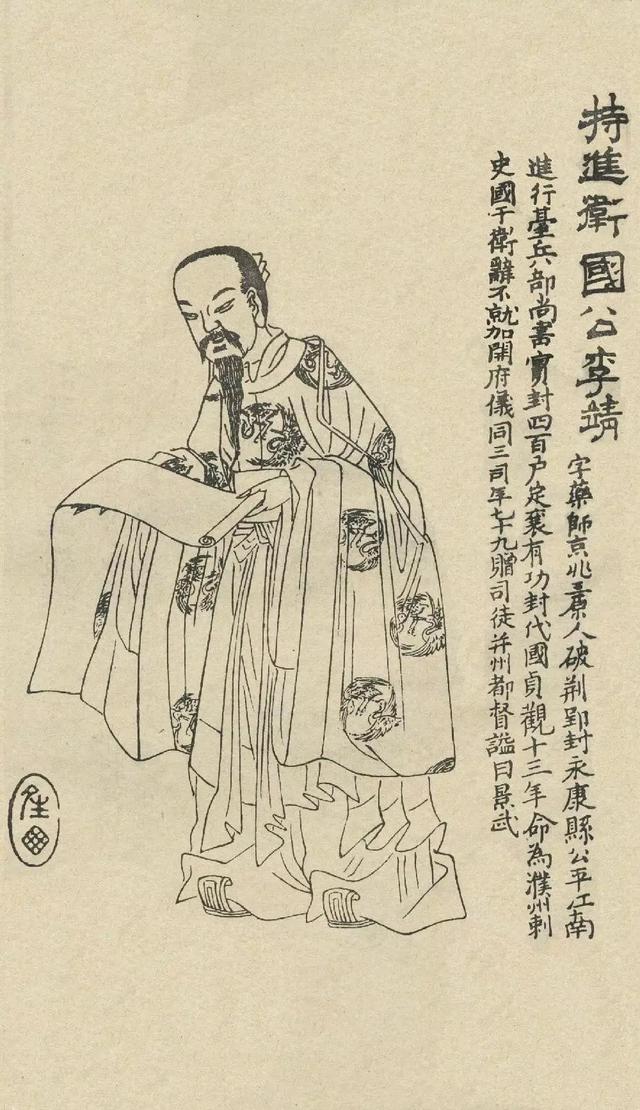 持進衛國公李靖
字藥師京兆三原人破荊郢封永康縣公平江南
進行臺兵部尚書實封四百户定襄有功封代國貞觀十三年命為濮州刺
史國于衛辭不就加開府儀同三司年七十九贈司徒并州都督謚曰景武